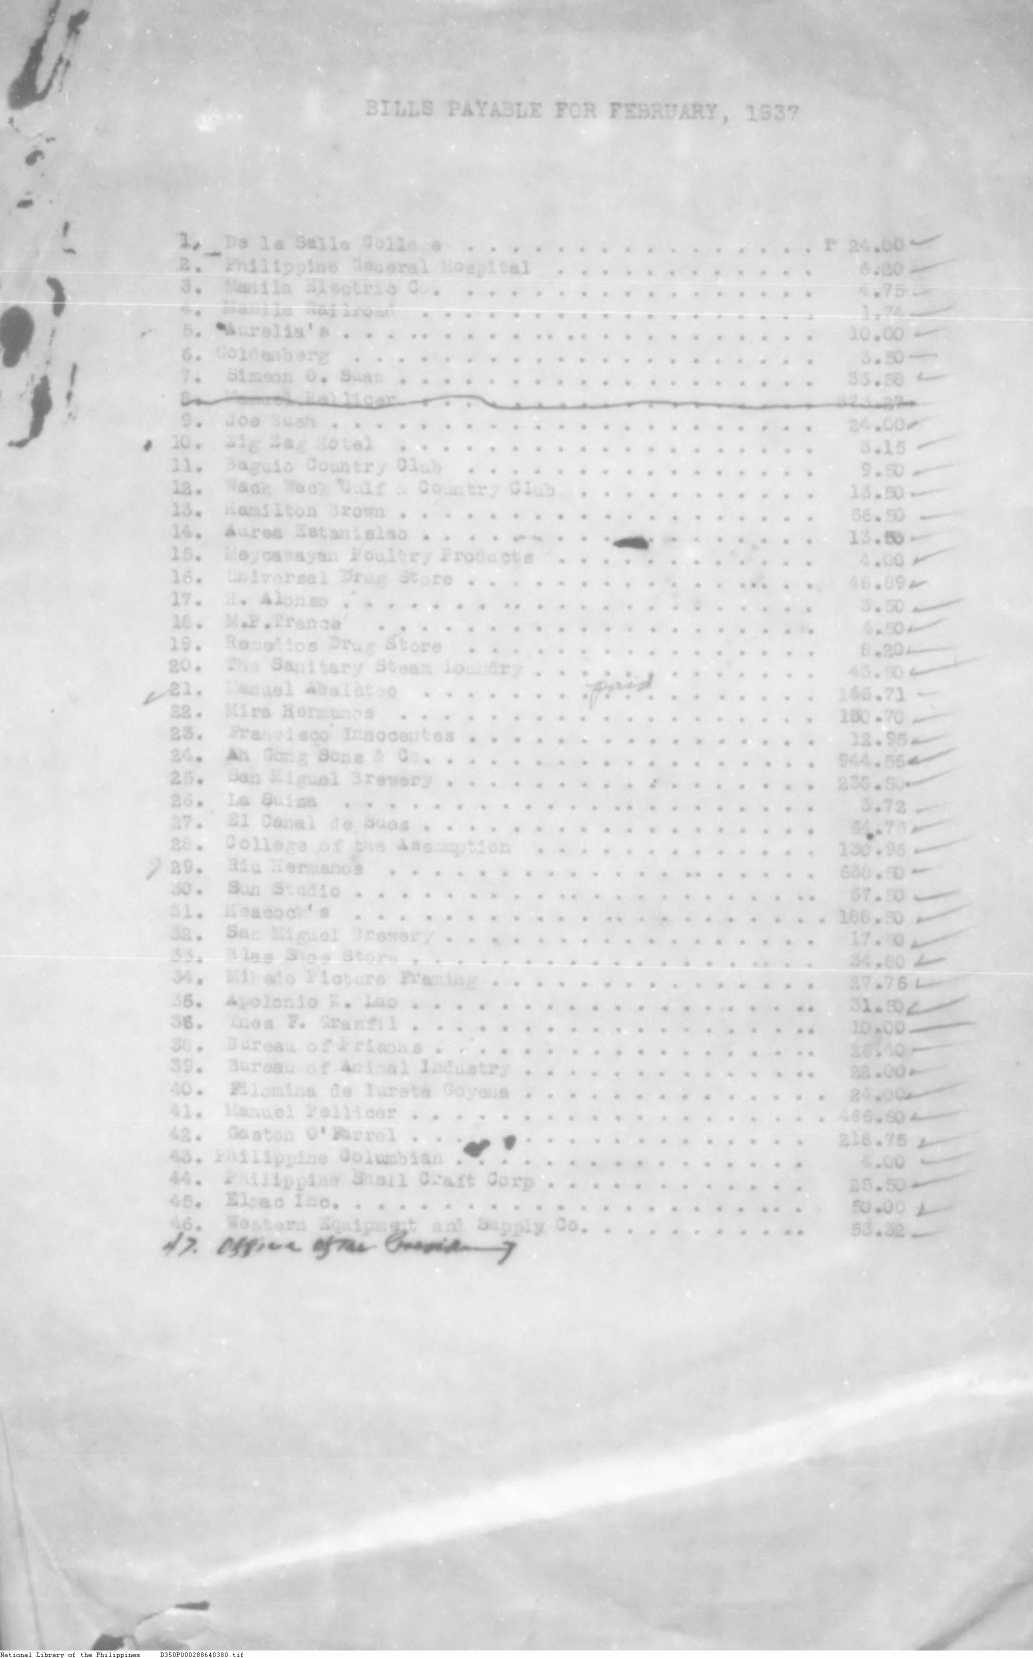 BILLS PAYABLE FOR FEBRUARY, 1937
1. De la Salle College . . . . . . . . . . . . . . . . P 24.00
2. Philippine General Hospital . . . . . . . . . . . . 6.20
3. Manila Electric Co. . . . . . . . . . . . . . . . . 4.75
4. Manila Railroad . . . . . . . . . . . . . . . . . .
5. Aurelia's . . . . . . . . . . . . . . . . . . . . . 10.00
6. Goldenberg . . . . . . . . . . . . . . . . . . . . . 3.50
7. Simeon O. . . . . . . . . . . . . . . . . . . .
8. Manuel Pellicer . . . . . . . . . . . . . . . . . .
9. Joe Bush . . . . . . . . . . . . . . . . . . . . . . 24.00
10. Zig Zag Hotel . . . . . . . . . . . . . . . . . . . 3.15
11. Baguio Country Club . . . . . . . . . . . . . . . . 9.50
12. Wack Wack Golf & Country Club . . . . . . . . . . . 13.50
13. Hamilton Brown . . . . . . . . . . . . . . . . . . . 56.50
14. Aurea Estanislao . . . . . . . . . . . . . . . . . . 13.50
15. Meycauayan Poultry Products . . . . . . . . . . . . 4.00
16. Universal Drug Store . . . . . . . . . . . . . . . . 46.09
17. H. Alonso . . . . . . . . . . . . . . . . . . . . . 3.50
18. M.P.Tranca . . . . . . . . . . . . . . . . . . . . 4.50
19. Remedios Drug Store . . . . . . . . . . . . . . . . 8.20
20. The Sanitary Steam Loundry . . . . . . . . . . . . . 43.50
paid
21. Manuel . . . . . . . . . . . . . . . . . . 166.71
22. Mira Hermanos . . . . . . . . . . . . . . . . . . . 150.70
23. Francisco Innocentes . . . . . . . . . . . . . . . . 12.95
24. Ah Gong Sons & Co. . . . . . . . . . . . . . . . . . 944.55
25. San Miguel Brewery . . . . . . . . . . . . . . . . . 236.50
26. La Suiza . . . . . . . . . . . . . . . . . . . . . 3.72
27. El Canal de Sues . . . . . . . . . . . . . . . . . .
28. College of the Assumption . . . . . . . . . . . . . 130.95
29. Riu Hermanos . . . . . . . . . . . . . . . . . . .
30. Sun Studio . . . . . . . . . . . . . . . . . . . . . 57.50
31. Heacock's . . . . . . . . . . . . . . . . . . . . . 166.50
32. San Miguel Brewery . . . . . . . . . . . . . . . . . 17.50
33. Shoe Store . . . . . . . . . . . . . . . . . . 34.80
34. Mikado Picture Framing . . . . . . . . . . . . . . . 27.75
35. Apolonio . Lao . . . . . . . . . . . . . . . . . . 31.50
36. Ines F. . . . . . . . . . . . . . . . . . . 10.00
38. Bureau of Prisons . . . . . . . . . . . . . . . . .
39. Bureau of Animal Industry . . . . . . . . . . . . . 22.00
40. Filomina de Goyena . . . . . . . . . . . . . . 24.00
41. Manuel Pellicer . . . . . . . . . . . . . . . . . . . 466.60
42. Gaston O'Farrel . . . . . . . . . . . . . . . . . . 218.75
43. Philippine Columbian . . . . . . . . . . . . . . . . 4.00
44. Philippine Shell Craft Corp . . . . . . . . . . . . 25.50
45. Elsac Inc. . . . . . . . . . . . . . . . . . . . . . 50.00
46. Western Equipment and Supply Co. . . . . . . . . . . 53.32
47. Office of the
National Library of the Philippines D350P000288640380.tif